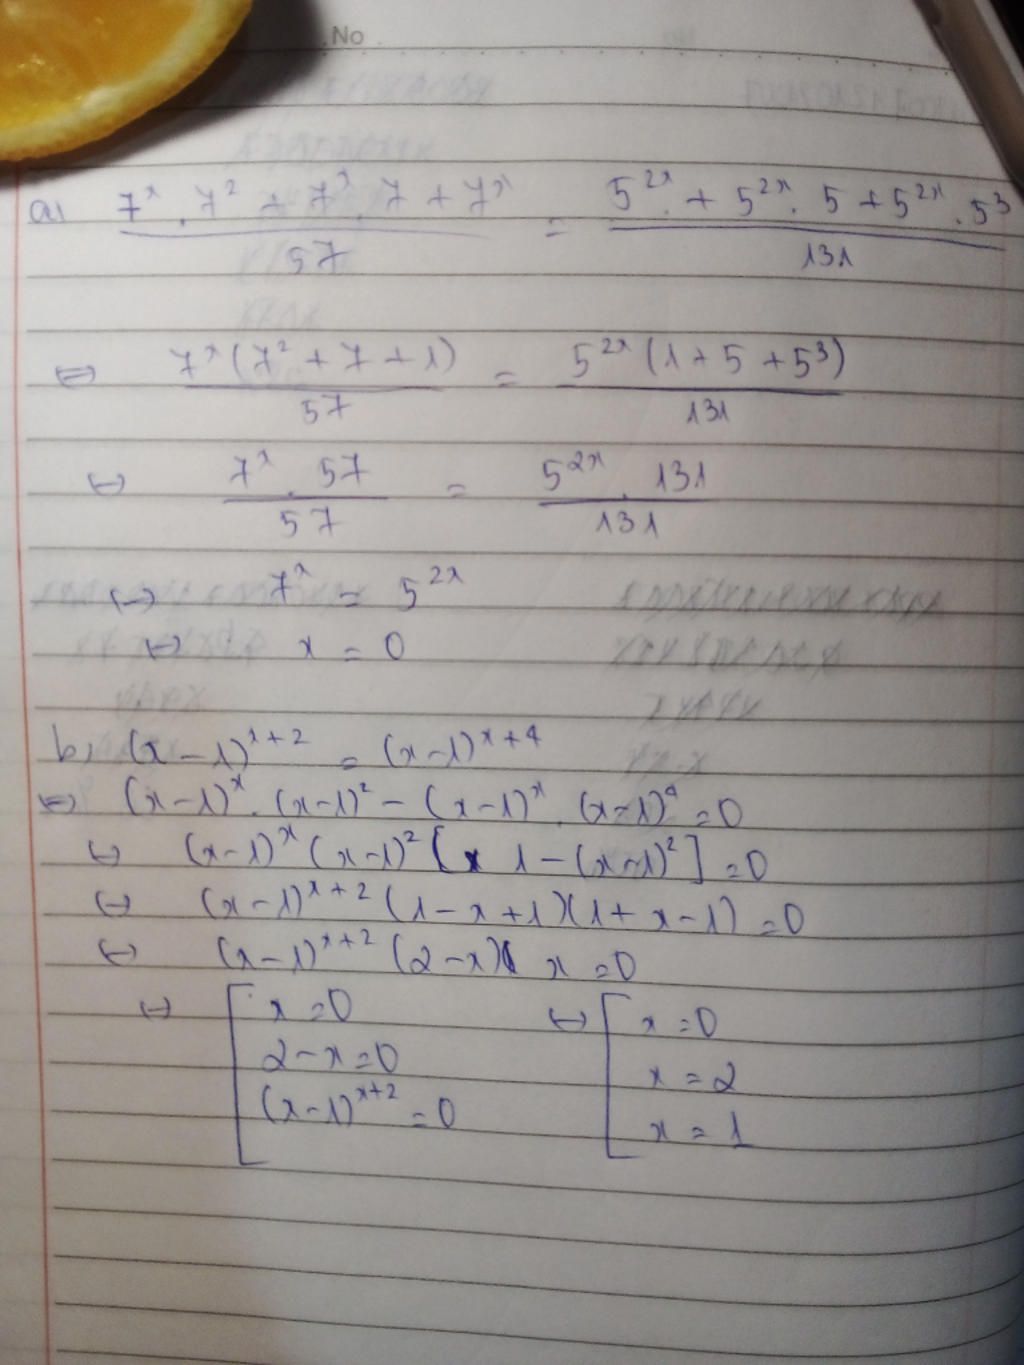 No
a) 7^x . 7^2 + 7^x . 7 + 7^x / 57 = 5^2x + 5^2x . 5 + 5^2x . 5^3 / 131
⇔ 7^x (7^2 + 7 + 1) / 57 = 5^2x (1 + 5 + 5^3) / 131
⇔ 7^x . 57 / 57 = 5^2x . 131 / 131
⇔ 7^x = 5^2x
⇔ x = 0
b) (x - 1)^x+2 = (x - 1)^x+4
⇔ (x - 1)^x . (x - 1)^2 - (x - 1)^x . (x - 1)^4 = 0
⇔ (x - 1)^x (x - 1)^2 [ 1 - (x - 1)^2 ] = 0
⇔ (x - 1)^x+2 (1 - x + 1)(1 + x - 1) = 0
⇔ (x - 1)^x+2 (2 - x) x = 0
⇔ [ x = 0 ⇔ [ x = 0
2 - x = 0 x = 2
(x - 1)^x+2 = 0 x = 1